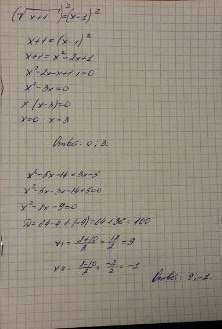 (√x+1)²=(x-1)²
x+1=(x-1)²
x+1=x²-2x+1
x²-2x-x+1-1=0
x²-3x=0
x(x-3)=0
x=0 x=3
Ответ: 0; 3.
x²-5x-14=3x-5
x²-5x-3x-14+5=0
x²-8x-9=0
D=64-4·(-9)=64+36=100
x₁=(8+10)/2=18/2=9
x₂=(8-10)/2=-2/2=-1
Ответ: 9; -1